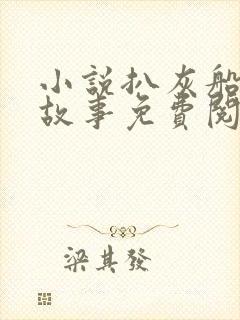 小說扒灰船
故事免費閱
梁其發